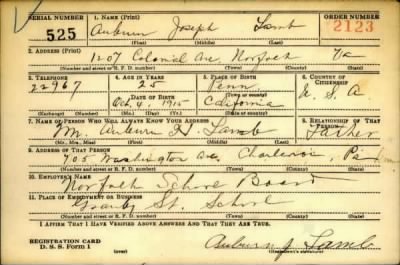 SERIAL NUMBER 1. NAME (Print) ORDER NUMBER
525 Auburn Joseph Lamb 2123
(First) (Middle) (Last)
2. ADDRESS (Print)
1207 Colonial Ave. Norfolk Va
(Number and street or R. F. D. number) (Town) (County) (State)
3. TELEPHONE 4. AGE IN YEARS 5. PLACE OF BIRTH 6. COUNTRY OF CITIZENSHIP
22967 25 Penn. U. S. A.
DATE OF BIRTH (Town or county)
Oct. 4, 1915 California
(Exchange) (Number) (Mo.) (Day) (Yr.) (State or country)
7. NAME OF PERSON WHO WILL ALWAYS KNOW YOUR ADDRESS 8. RELATIONSHIP OF THAT PERSON
M. Auburn Lamb Father
(Mr., Mrs., Miss) (First) (Middle) (Last)
9. ADDRESS OF THAT PERSON
705 Washington Ave. Charleroi, Pa
(Number and street or R. F. D. number) (Town) (County) (State)
10. EMPLOYER'S NAME
Norfolk School Board
11. PLACE OF EMPLOYMENT OR BUSINESS
Granby St. School
(Number and street or R. F. D. number) (Town) (County) (State)
I AFFIRM THAT I HAVE VERIFIED ABOVE ANSWERS AND THAT THEY ARE TRUE.
REGISTRATION CARD
D. S. S. Form 1
Auburn J. Lamb
(Registrant's signature)